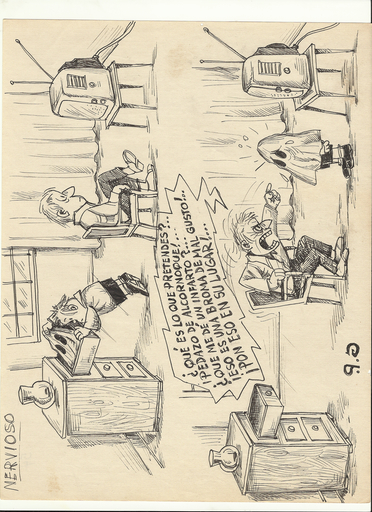 NERVIOSO
¿QUÉ ES LO QUE PRETENDES?..
¡PEDAZO DE ALCORNOQUE!....
¿QUE ME DÉ UN INFARTO?...
¿ESO ES UNA BROMA DE MAL GUSTO!...
¡PON ESO EN SU LUGAR!...
G.B